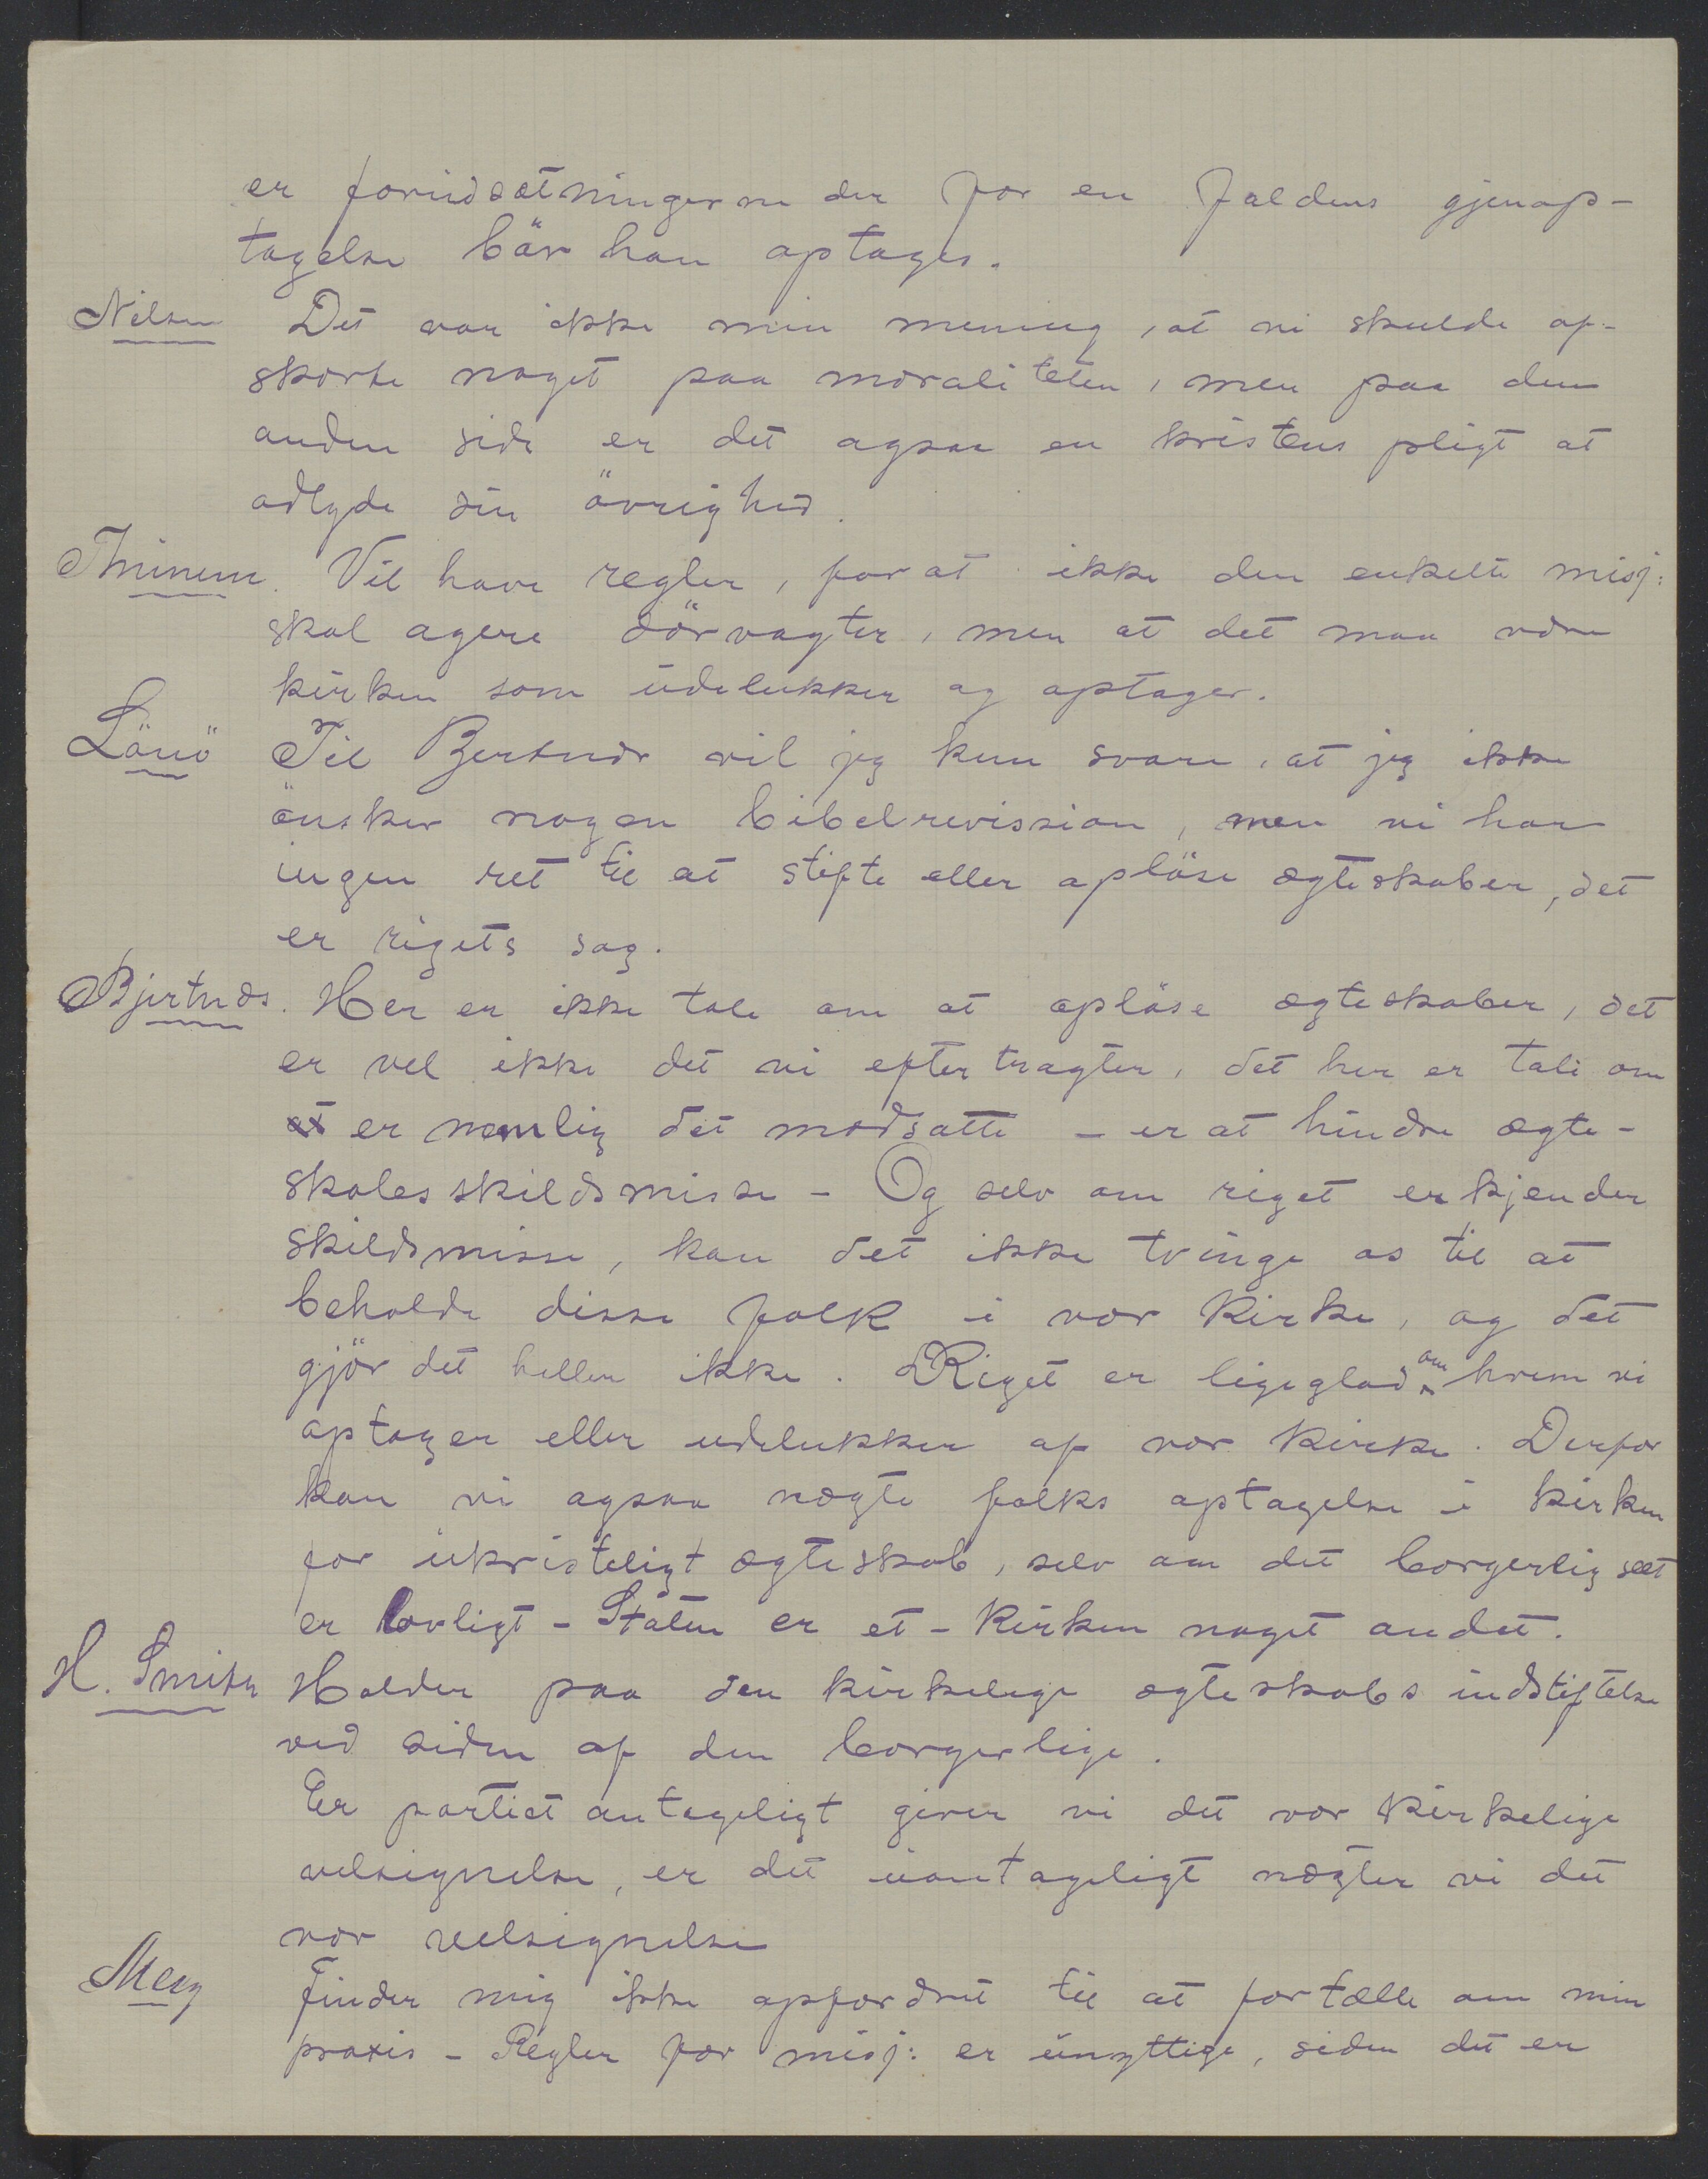 er forudsætningerne der for en faldens gjenop-
tagelse bör han optages.
Nilsen Det var ikke min mening, at vi skulde af-
skorte noget paa moraliteten, men paa den
anden side er det ogsaa en kristens pligt at
adlyde sin övrighed.
Thunem. Vil have regler, for at ikke den enkelte misj:
skal agere dörvogter, men at det maa være
kirken som udelukker og optager.
Lönö Til Bertnæs vil jeg kun svare, at jeg ikke
önsker nogen bibelrevission, men vi har
ingen ret til at stifte eller oplöse ægteskaber, det
er rigets sag.
Bjertnæs. Her er ikke tale om at oplöse ægteskaber, det
er vel ikke det vi eftertragter, det her er tale om
at er nemlig det modsatte – er at hindre ægte-
skabsskildsmisse – Og selv om riget erkjender
skildsmisse, kan det ikke tvinge os til at
beholde disse folk i vor kirke, og det
gjör det heller ikke. Riget er ligeglad om hvem vi
optager eller udelukker af vor kirke. Derfor
kan vi ogsaa nægte folks optagelse i kirken
for ukristeligt ægteskab, selv om det borgerlig seet
er lovligt – Staten er et – Kirken noget andet.
H. Smith Holder paa den kirkelige ægteskabs indstiftelse
ved siden af den borgerlige.
Er partiet antageligt giver vi det vor kirkelige
velsignelse, er det uantageligt nægter vi det
vor velsignelse
Meeg Finder mig ikke opfordret til at fortælle om min
praxis – Regler for misj: er unyttige, siden det er